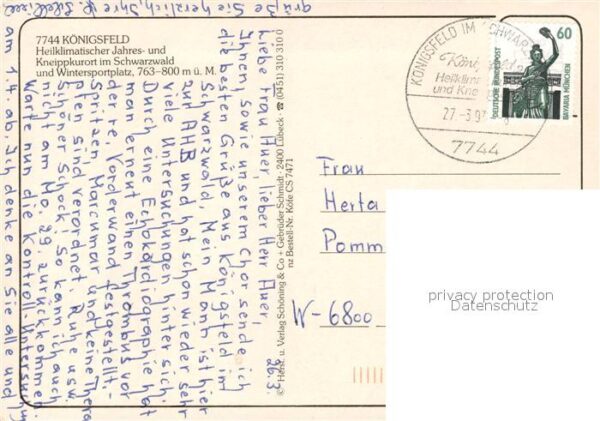 7744 KÖNIGSFELD
Heilklimatischer Jahres- und
Kneippkurort im Schwarzwald
und Wintersportplatz, 763–800 m ü. M.
26.3.
Liebe Frau Auer, lieber Herr Auer,
Ihnen, sowie unserem Chor sende ich
die besten Grüße aus Königsfeld im
Schwarzwald. Mein Mann ist hier
zur AHB und hat schon wieder sehr
viele Untersuchungen hinter sich.
Durch eine Echokardiographie hat
man erneut einen Thrombus vor
der re. Vorderwand festgestellt.-
Spritzen, Marcumar und keine Thera
pien sind verordnet. Ruhe usw.
Schöner Schock! So kann ich auch
nicht am Mo. 29. zurückkommen.
Warte nun die Kontroll Untersuchg
am 1.4. ab. Ich denke an Sie alle und
grüße Sie herzlich, Ihre
© Horst. u. Verlag Schöning & Co + Gebrüder Schmidt · 2400 Lübeck · ☎ (0451) 310 310 0
nz Bestell-Nr. Köfe CS 7471
KÖNIGSFELD IM SCHWARZ
Heilklim
und Kne
27.-3.93
7744
60
DEUTSCHE BUNDESPOST
BAVARIA MÜNCHEN
Frau
Herta
Pomm
W-6800
privacy protection
Datenschutz